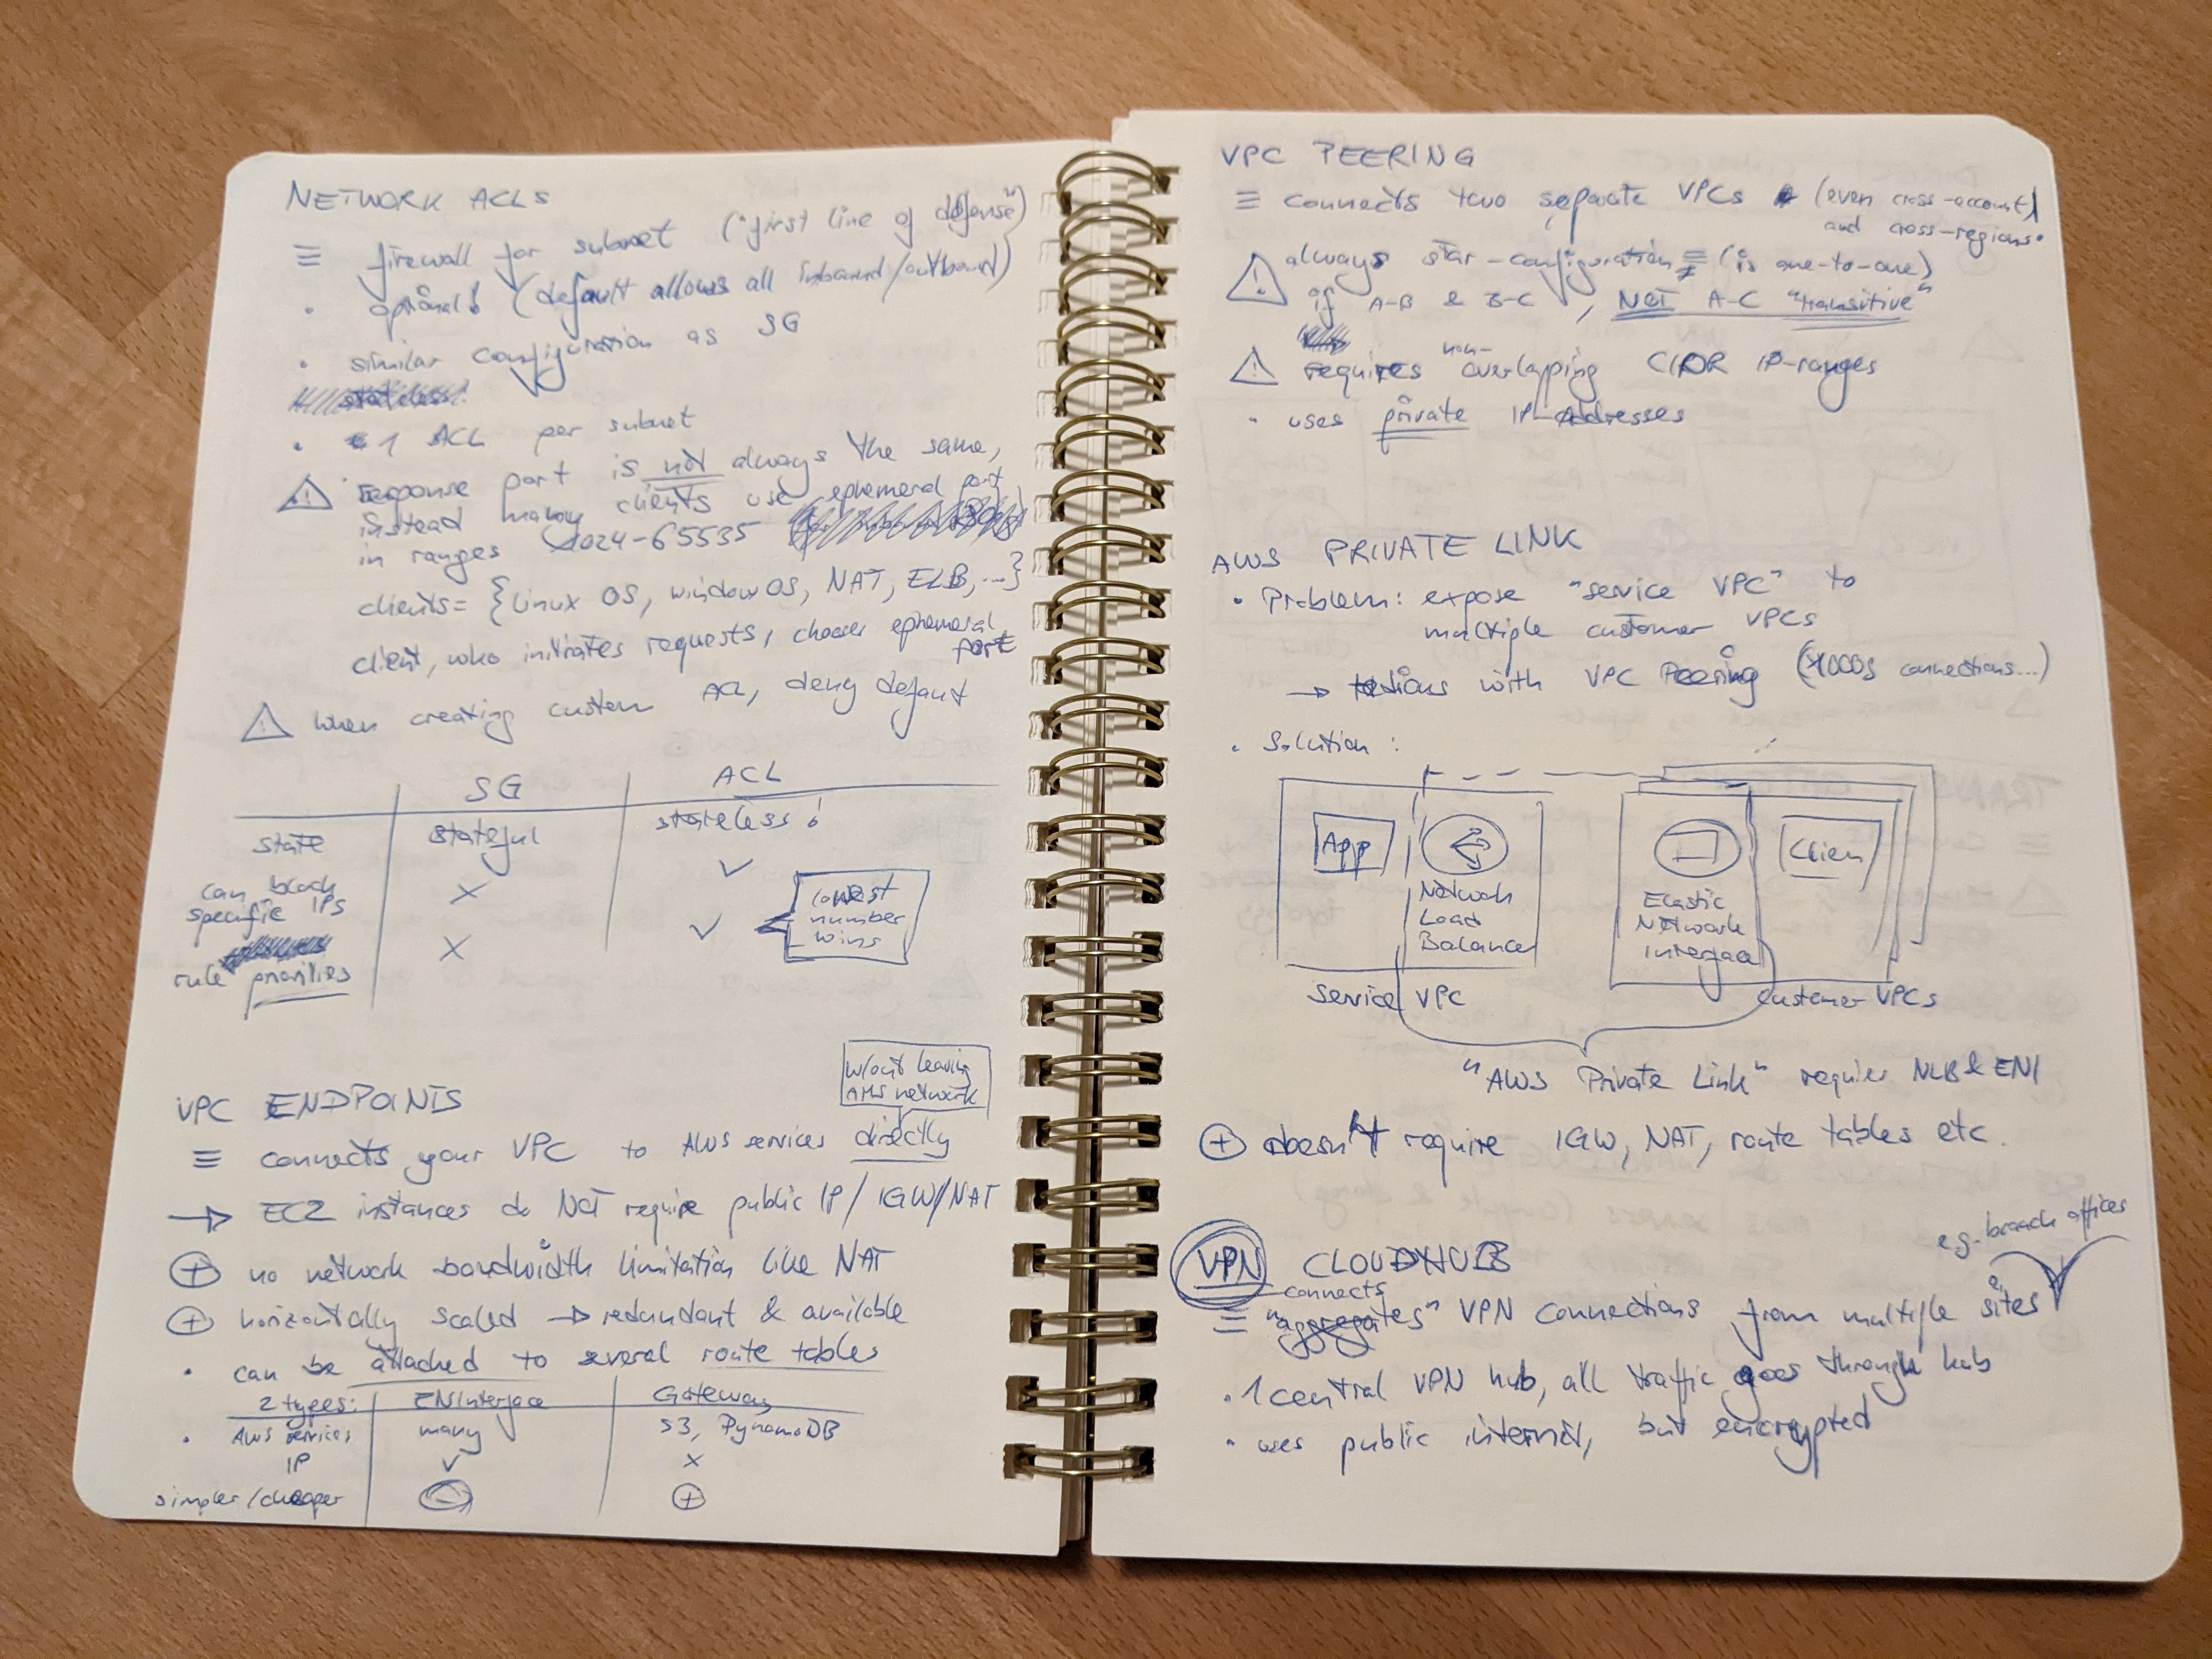 NETWORK ACLs
≡ firewall for subnet ("first line of defense")
• optional! (default allows all inbound/outbound)
• similar configuration as SG
stateless!
• 1 ACL per subnet
⚠ response port is not always the same,
instead many clients use ephemeral port
in ranges 1024-65535
clients = {Linux OS, windows OS, NAT, ELB, ...}
client, who initiates requests, chooses ephemeral
port
⚠ when creating custom ACL, deny default
SG ACL
state stateful stateless!
can block specific IPs × ✓
rule priorities × ✓
lowest
number
wins
VPC ENDPOINTS
w/out leaving
AWS network
≡ connects your VPC to AWS services directly
→ EC2 instances do NOT require public IP/IGW/NAT
⊕ no network bandwidth limitation like NAT
⊕ horizontally scaled → redundant & available
• can be attached to several route tables
2 types: ENInterface Gateway
• AWS services many S3, DynamoDB
IP ✓ ×
simpler/cheaper ⊖ ⊕
VPC PEERING
≡ connects two separate VPCs (even cross-account)
and cross-regions
⚠ always star-configuration (is one-to-one)
if A-B & B-C, NOT A-C "transitive"
non-
⚠ requires overlapping CIDR IP-ranges
• uses private IP-Addresses
AWS PRIVATE LINK
• Problem: expose "service VPC" to
multiple customer VPCs
→ tedious with VPC Peering (1000s connections...)
• Solution:
App
Network
Load
Balancer
Elastic
Network
Interface
Clien
Service VPC
Customer VPCs
"AWS Private Link" requires NLB & ENI
⊕ doesn't require IGW, NAT, route tables etc.
VPN CLOUDHUB
e.g. branch offices
connects
≡ "aggregates" VPN connections from multiple sites
• 1 central VPN hub, all traffic goes through hub
• uses public internet, but encrypted